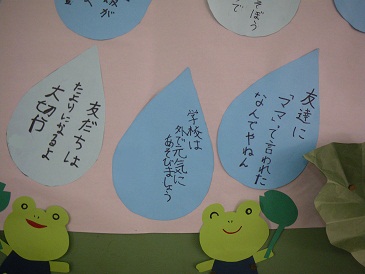 そぼう
で
友達に
「ママ」って言われた
なんでやねん
学校は
外で元気に
あそびましょう
友だちは
たよりになるよ
大切